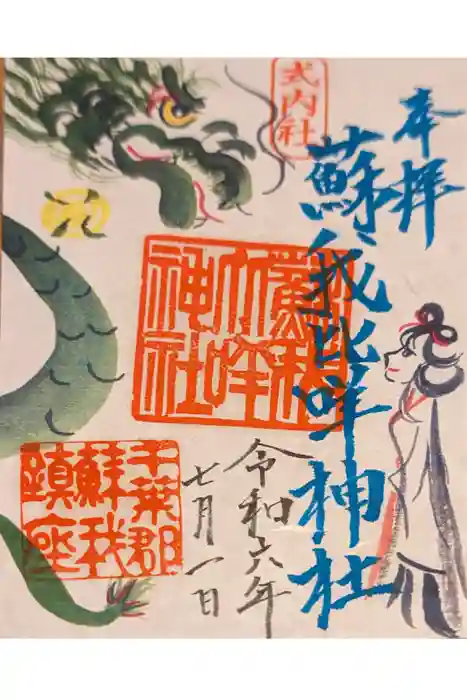 奉拝
式内社
蘇我比咩神社
蘇我
比咩
神社
令和六年
七月一日
千葉郡
蘇我
鎮座